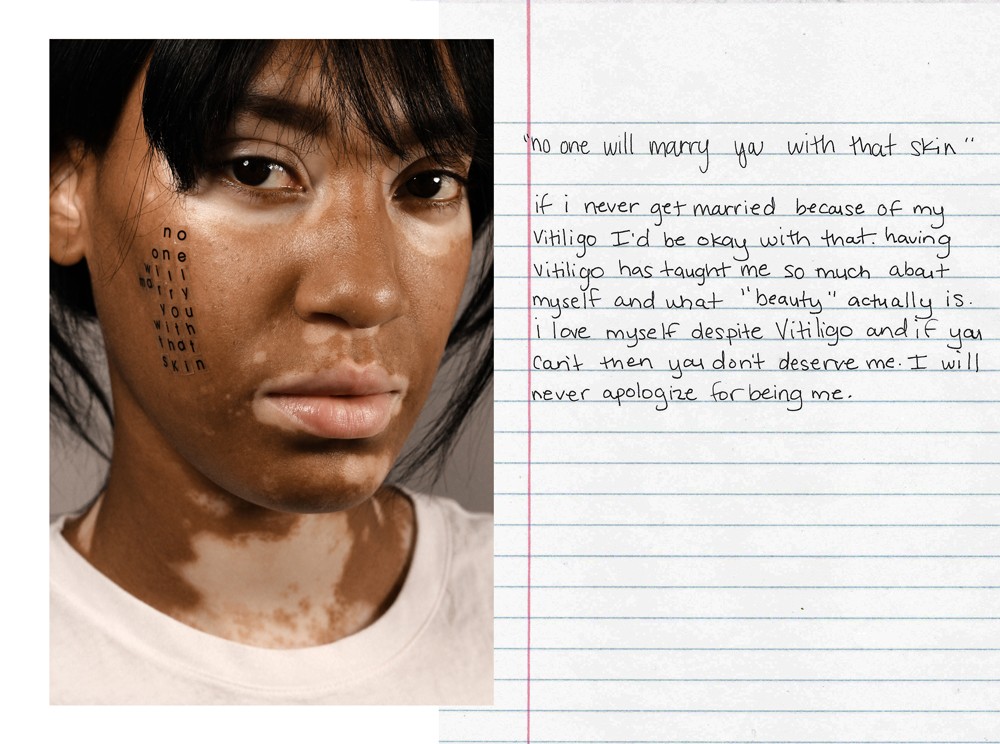 no
one
will
marry
you
with
that
skin
"no one will marry you with that skin"
if i never get married because of my
Vitiligo I'd be okay with that. having
Vitiligo has taught me so much about
myself and what "beauty" actually is.
i love myself despite Vitiligo and if you
can't then you don't deserve me. I will
never apologize for being me.